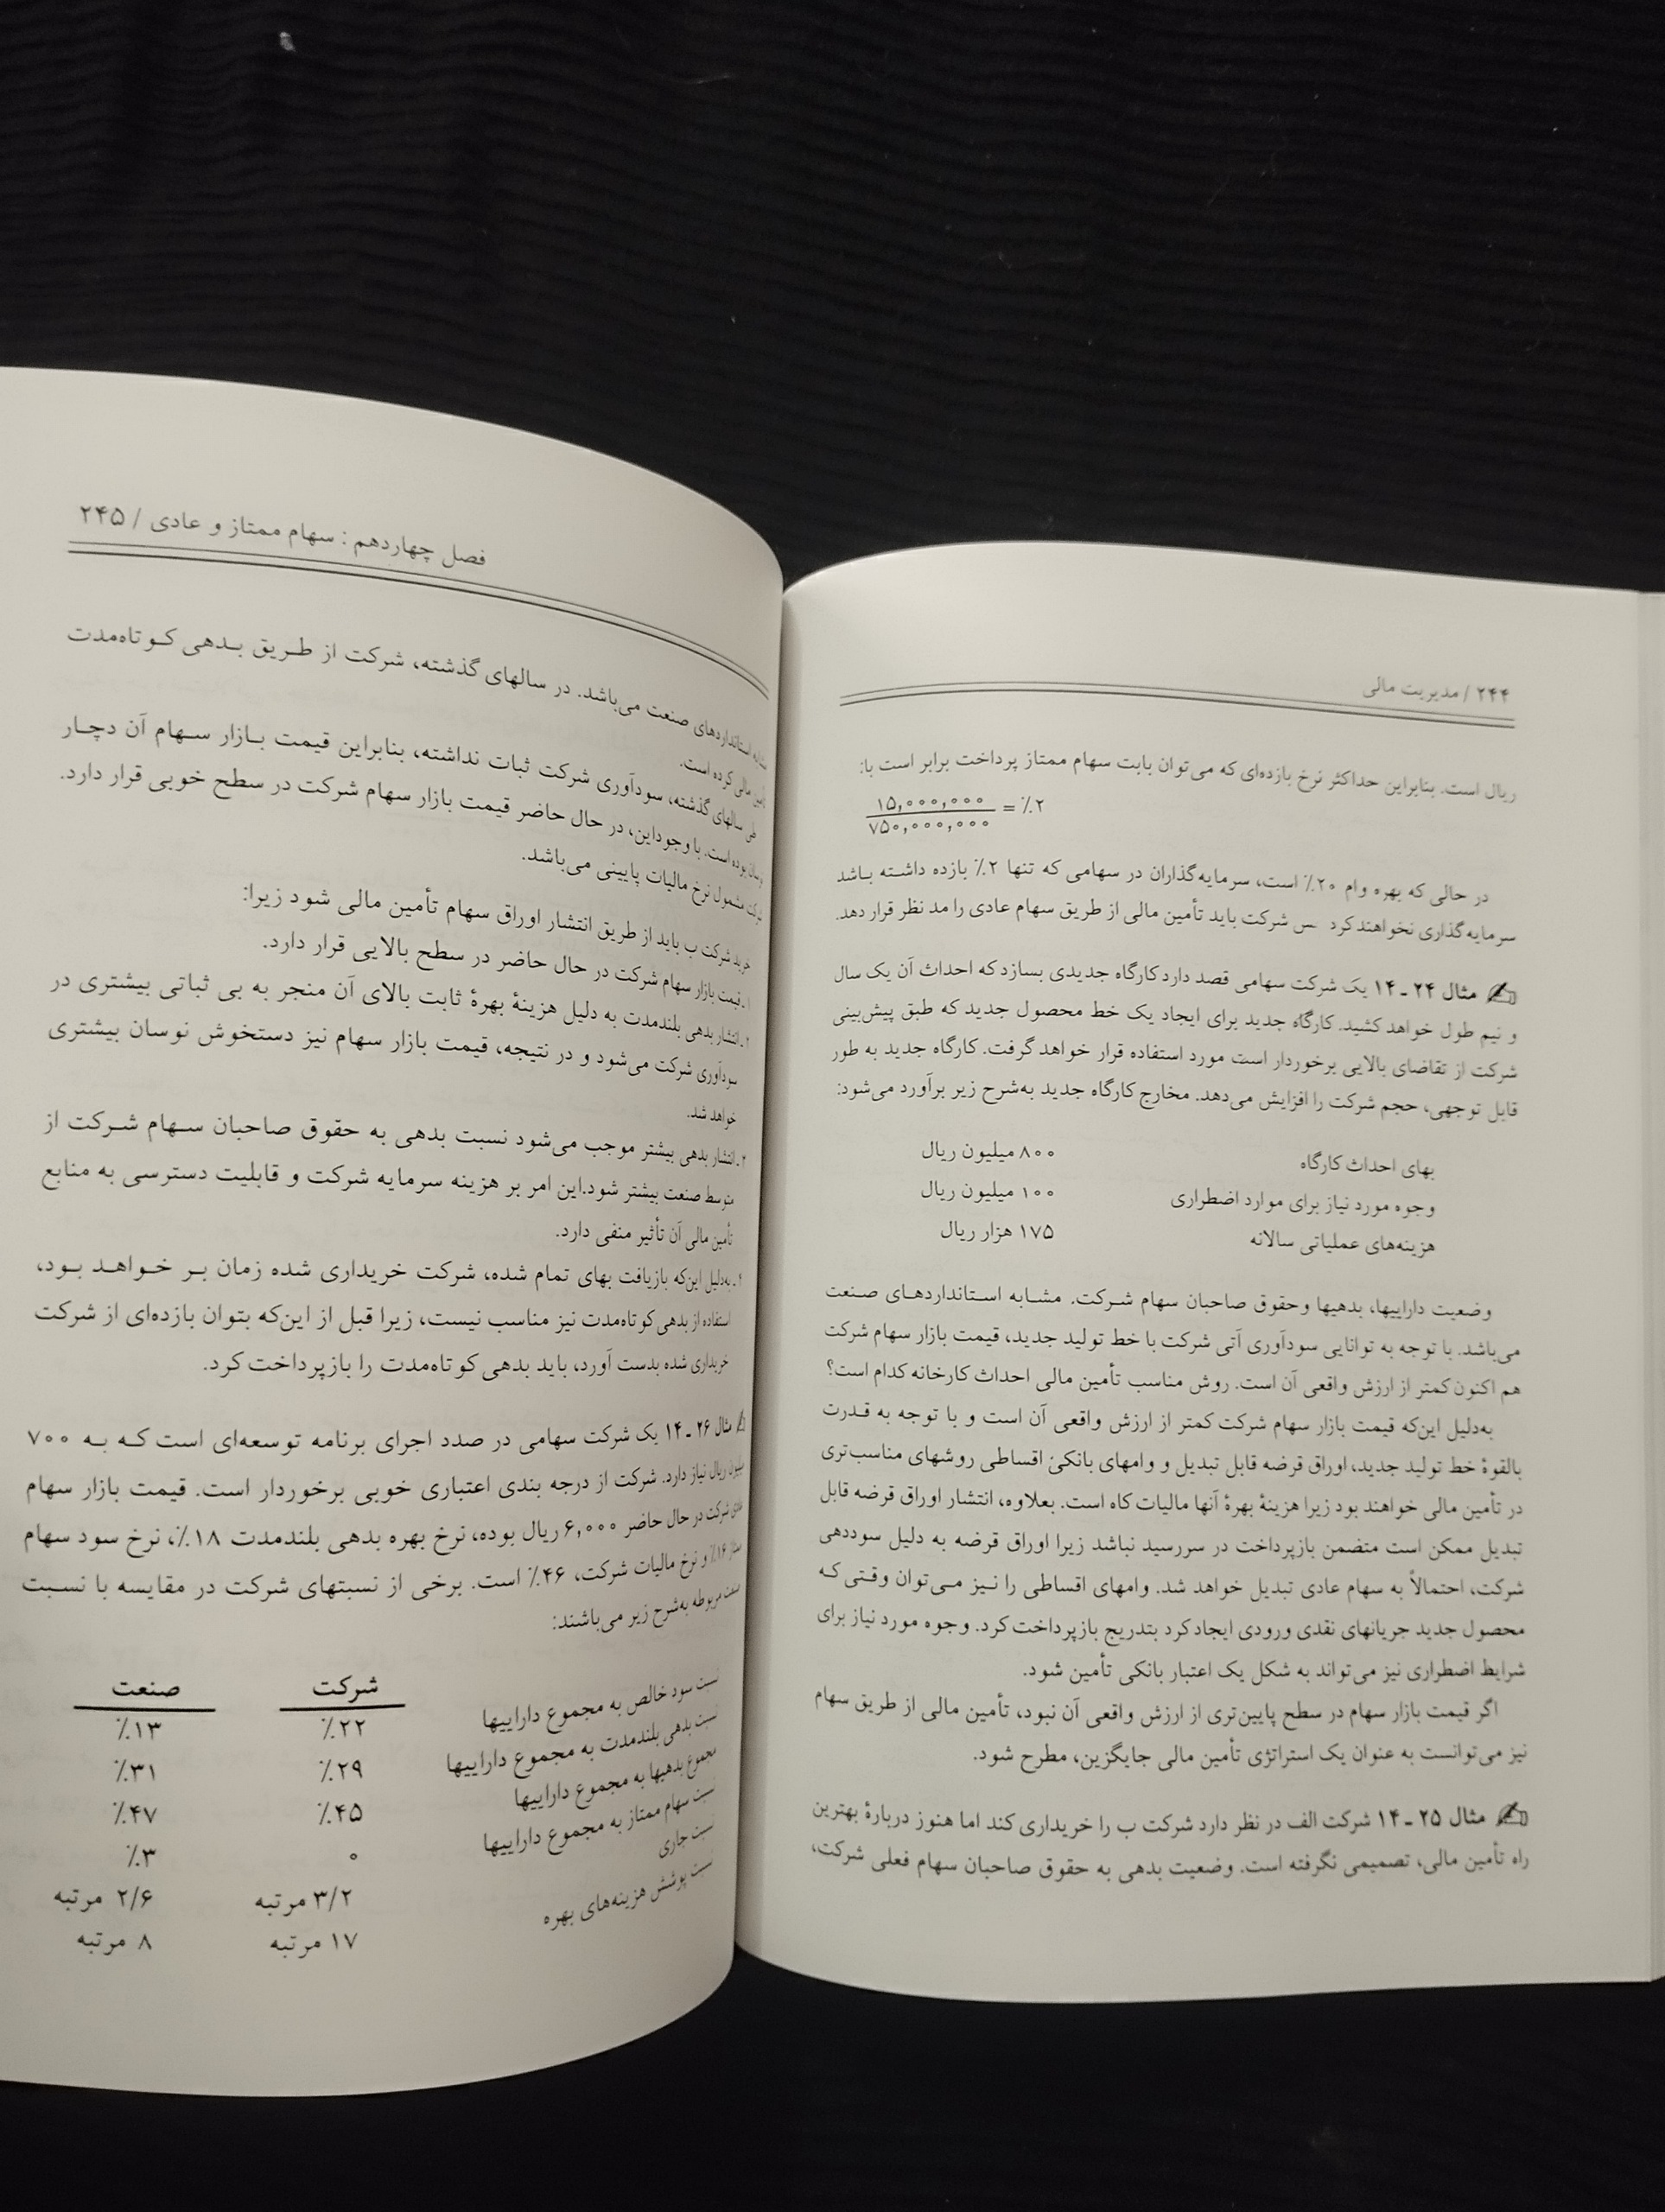 ۲۴۴ / مدیریت مالی
ریال است. بنابراین حداکثر نرخ بازده‌ای که می‌توان بابت سهام ممتاز پرداخت برابر است با:
۱۵,۰۰۰,۰۰۰
۷۵۰,۰۰۰,۰۰۰ = ٪۲
در حالی که بهره وام ۲۰٪ است، سرمایه‌گذاران در سهامی که تنها ۲٪ بازده داشته باشد
سرمایه‌گذاری نخواهند کرد شرکت باید تأمین مالی از طریق سهام عادی را مد نظر قرار دهد.
مثال ۲۴ ـ ۱۴ یک شرکت سهامی قصد دارد کارگاه جدیدی بسازد که احداث آن یک سال
و نیم طول خواهد کشید. کارگاه جدید برای ایجاد یک خط محصول جدید که طبق پیش‌بینی
شرکت از تقاضای بالایی برخوردار است مورد استفاده قرار خواهد گرفت. کارگاه جدید به طور
قابل توجهی، حجم شرکت را افزایش می‌دهد. مخارج کارگاه جدید به‌شرح زیر برآورد می‌شود:
بهای احداث کارگاه ۸۰۰ میلیون ریال
وجوه مورد نیاز برای موارد اضطراری ۱۰۰ میلیون ریال
هزینه‌های عملیاتی سالانه ۱۷۵ هزار ریال
وضعیت داراییها، بدهیها وحقوق صاحبان سهام شرکت. مشابه استانداردهای صنعت
می‌باشد. با توجه به توانایی سودآوری آتی شرکت با خط تولید جدید، قیمت بازار سهام شرکت
هم اکنون کمتر از ارزش واقعی آن است. روش مناسب تأمین مالی احداث کارخانه کدام است؟
به‌دلیل این‌که قیمت بازار سهام شرکت کمتر از ارزش واقعی آن است و با توجه به قدرت
بالقوهٔ خط تولید جدید، اوراق قرضه قابل تبدیل و وامهای بانکی اقساطی روشهای مناسب‌تری
در تأمین مالی خواهند بود زیرا هزینهٔ بهرهٔ آنها مالیات کاه است. بعلاوه، انتشار اوراق قرضه قابل
تبدیل ممکن است متضمن بازپرداخت در سررسید نباشد زیرا اوراق قرضه به دلیل سوددهی
شرکت، احتمالاً به سهام عادی تبدیل خواهد شد. وامهای اقساطی را نیز می‌توان وقتی که
محصول جدید جریانهای نقدی ورودی ایجاد کرد بتدریج بازپرداخت کرد. وجوه مورد نیاز برای
شرایط اضطراری نیز می‌تواند به شکل یک اعتبار بانکی تأمین شود.
اگر قیمت بازار سهام در سطح پایین‌تری از ارزش واقعی آن نبود، تأمین مالی از طریق سهام
نیز می‌توانست به عنوان یک استراتژی تأمین مالی جایگزین، مطرح شود.
مثال ۲۵ ـ ۱۴ شرکت الف در نظر دارد شرکت ب را خریداری کند اما هنوز دربارهٔ بهترین
راه تأمین مالی، تصمیمی نگرفته است. وضعیت بدهی به حقوق صاحبان سهام فعلی شرکت،
فصل چهاردهم : سهام ممتاز و عادی / ۲۴۵
استانداردهای صنعت می‌باشد. در سالهای گذشته، شرکت از طریق بدهی کوتاه‌مدت
تأمین مالی کرده است.
طی سالهای گذشته، سودآوری شرکت ثبات نداشته، بنابراین قیمت بازار سهام آن دچار
نوسان بوده است. با وجود این، در حال حاضر قیمت بازار سهام شرکت در سطح خوبی قرار دارد.
شرکت مشمول نرخ مالیات پایینی می‌باشد.
خرید شرکت ب باید از طریق انتشار اوراق سهام تأمین مالی شود زیرا:
۱ـ قیمت بازار سهام شرکت در حال حاضر در سطح بالایی قرار دارد.
۲ـ انتشار بدهی بلندمدت به دلیل هزینهٔ بهرهٔ ثابت بالای آن منجر به بی ثباتی بیشتری در
سودآوری شرکت می‌شود و در نتیجه، قیمت بازار سهام نیز دستخوش نوسان بیشتری
خواهد شد.
۳ـ انتشار بدهی بیشتر موجب می‌شود نسبت بدهی به حقوق صاحبان سهام شرکت از
متوسط صنعت بیشتر شود.این امر بر هزینه سرمایه شرکت و قابلیت دسترسی به منابع
تأمین مالی آن تأثیر منفی دارد.
۴ـ به‌دلیل این‌که بازیافت بهای تمام شده، شرکت خریداری شده زمان بر خواهد بود،
استفاده از بدهی کوتاه‌مدت نیز مناسب نیست، زیرا قبل از این‌که بتوان بازده‌ای از شرکت
خریداری شده بدست آورد، باید بدهی کوتاه‌مدت را بازپرداخت کرد.
مثال ۲۶ ـ ۱۴ یک شرکت سهامی در صدد اجرای برنامه توسعه‌ای است که به ۷۰۰
میلیون ریال نیاز دارد. شرکت از درجه بندی اعتباری خوبی برخوردار است. قیمت بازار سهام
شرکت در حال حاضر ۶,۰۰۰ ریال بوده، نرخ بهره بدهی بلندمدت ۱۸٪، نرخ سود سهام
ممتاز ۱۶٪ و نرخ مالیات شرکت، ۴۶٪ است. برخی از نسبتهای شرکت در مقایسه با نسبت
صنعت مربوطه به‌شرح زیر می‌باشند:
شرکت صنعت
نسبت سود خالص به مجموع داراییها ٪۲۲ ٪۱۳
نسبت بدهی بلندمدت به مجموع داراییها ٪۲۹ ٪۳۱
مجموع بدهیها به مجموع داراییها ٪۴۵ ٪۴۷
نسبت سهام ممتاز به مجموع داراییها ۰ ٪۳
نسبت جاری ۳/۲ مرتبه ۲/۶ مرتبه
نسبت پوشش هزینه‌های بهره ۱۷ مرتبه ۸ مرتبه